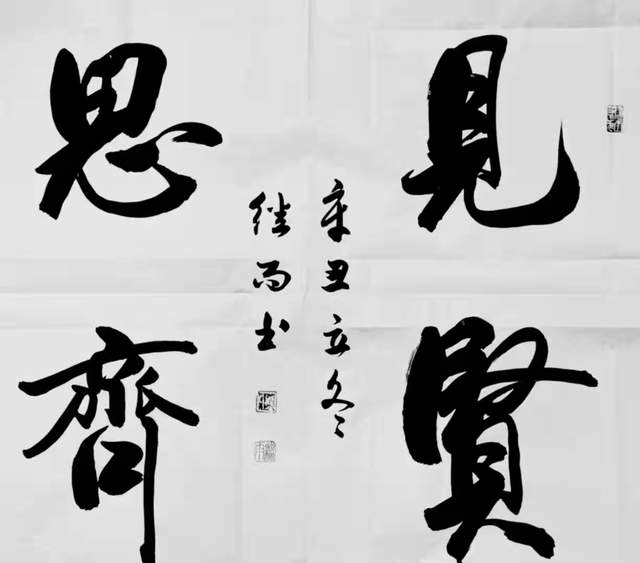 見賢
思齊
辛丑立冬
继而书